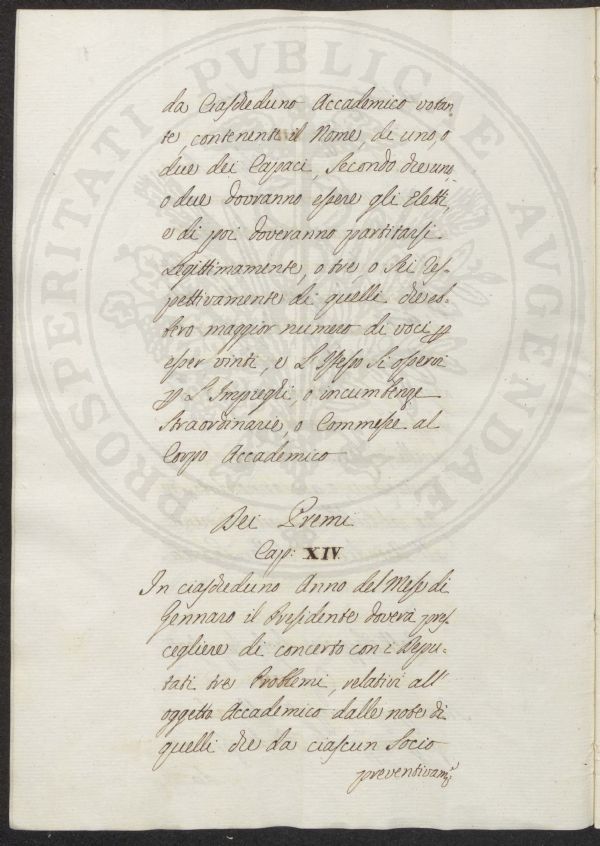 PROSPERITATI PVBLICAE AVGENDAE
da Ciascheduno Accademico votan
te, contenente il Nome, di uno, o
due dei Capaci, secondo che uno,
o due dovranno essere gli Eletti,
e di poi doveranno partitarsi
Legittimamente, o tre o sei res-
pettivamente di quelli che eb-
bero maggior numero di voci p
esser vinti, e L'istesso si osservi
p L'Impieghi, o incumbenze
straordinarie, o Commesse al
Corpo Accademico
Dei Premi
Cap: XIV.
In ciascheduno Anno del Mese di
Gennaro il Presidente doverà pres
cegliere di concerto con i Depu-
tati tre Problemi, relativi all'
oggetto Accademico dalle note di
quelli che da ciascun Socio
preventivam.e